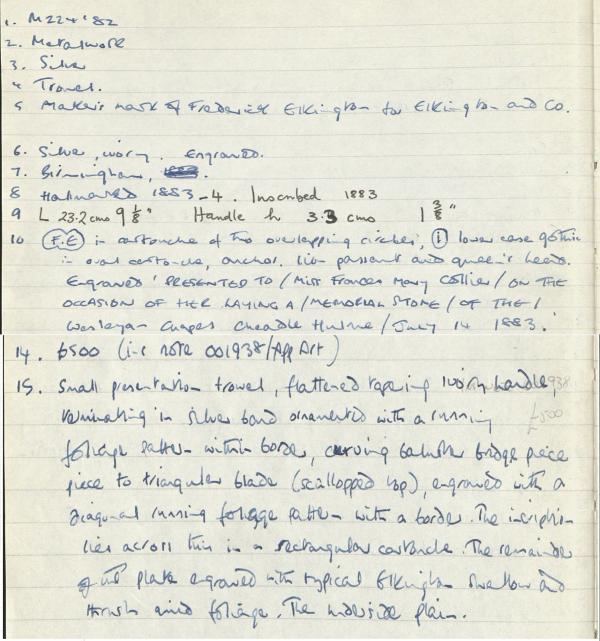 1. M22+'82
2. Metalwork
3. Silver
4 Trowel.
5 Maker's mark of Frederick Elkington for Elkington and Co.
6. Silver, ivory. Engraved.
7. Birmingham,
8 Hallmarked 1883-4. Inscribed 1883
9 L 23.2 cms 9 1/8" Handle h 3.3 cms 1 3/8"
10 (F.E) in cartouche of two overlapping circles, (i) lower case gothic
in oval cartouche, anchor. lion passant and queen's head.
Engraved 'PRESENTED TO / Miss Frances Mary Collier / ON THE
OCCASION OF HER LAYING A / MEMORIAL STONE / OF THE /
Wesleyan Chapel Cheadle Hulme / July 14 1883.'
14. £500 (i-c note 001938/App Art)
15. Small presentation trowel, flattened tapering ivory handle, 938
terminating in silver band ornamented with a running £500
foliage pattern within border, curving baluster bridge piece
piece to triangular blade (scallopped top), engraved with a
diagonal running foliage pattern with a border. The inscription
lies across this in a rectangular cartouche. The remainder
of the plate engraved with typical Elkington swallow and
thrush amid foliage. The underside plain.